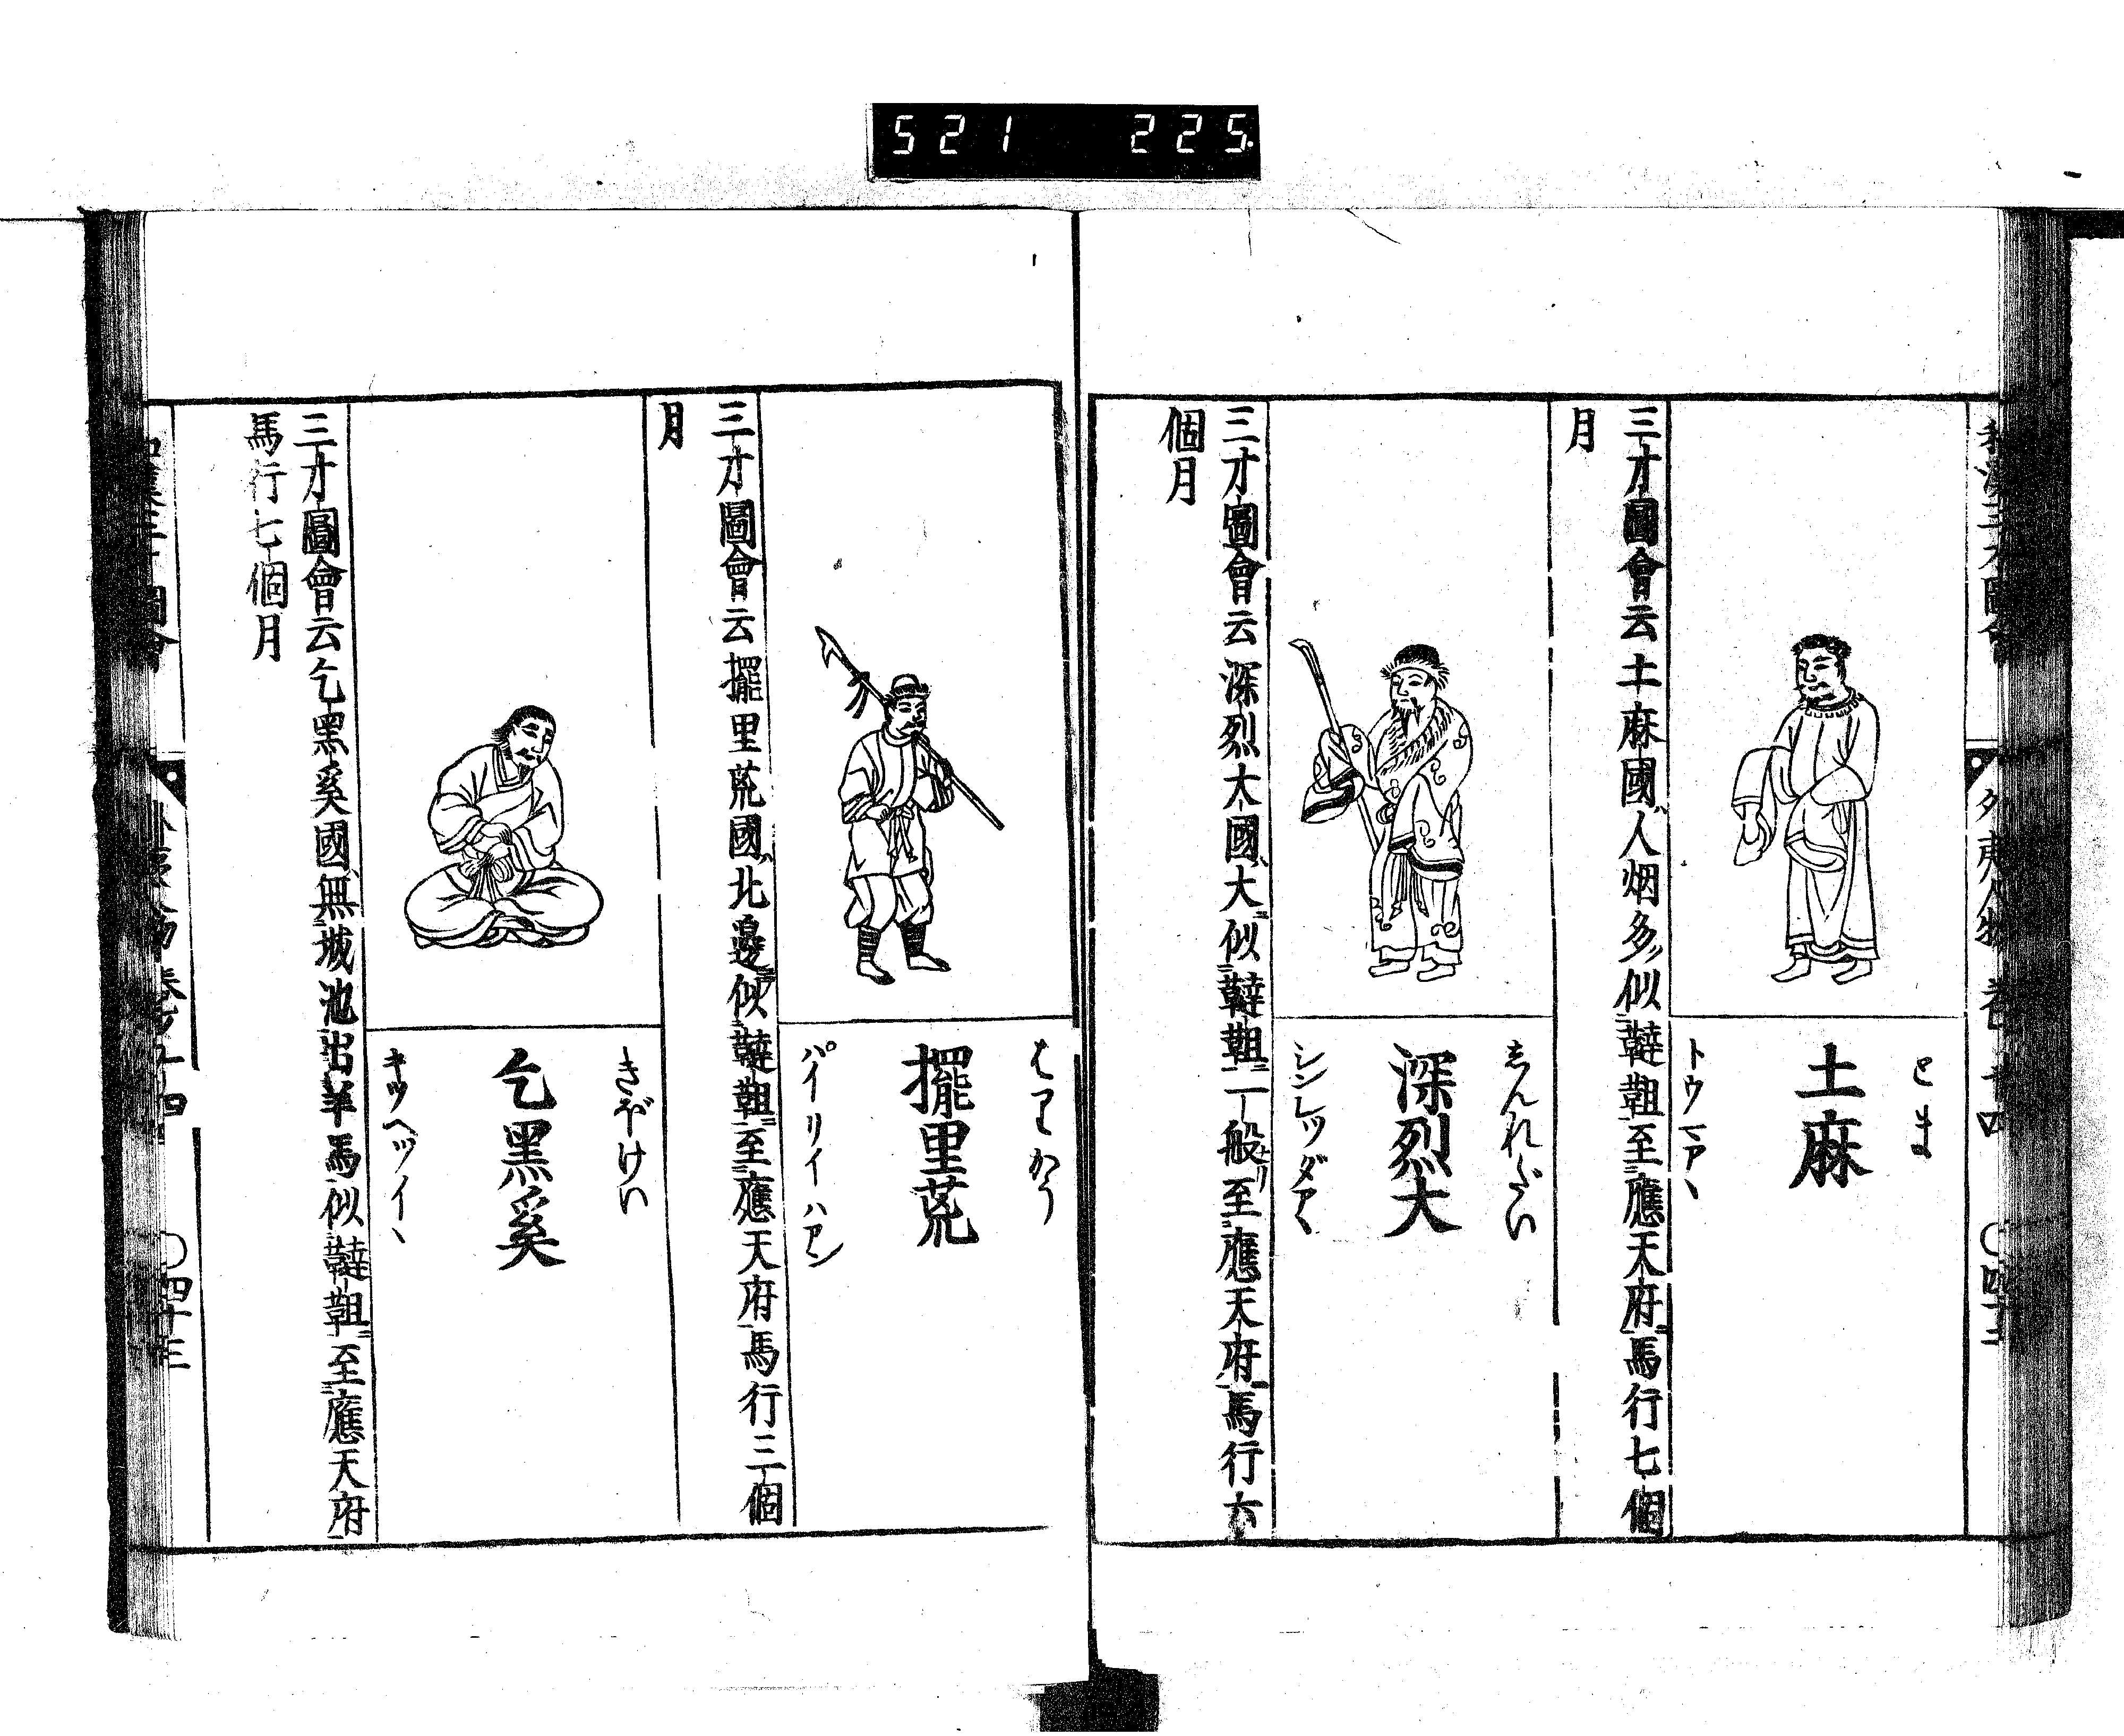 521 225
和漢三才圖會
外夷人物 卷十四 〇四十三
とま
土麻
トウマアヽ
三才圖會云土麻國人烟多似韃靼至應天府馬行七個
月
しんれつだい
深烈大
シンレッダアヽ
三才圖會云深烈大國大似韃靼一般ナリ至應天府馬行六
個月
擺里荒
パイリイハアン
三才圖會云擺里荒國北邊似韃靼至應天府馬行三個
月
乞黑奚
キツヘツイヽ
三才圖會云乞黑奚國無城池出羊馬似韃靼至應天府
馬行七個月
〇四十三